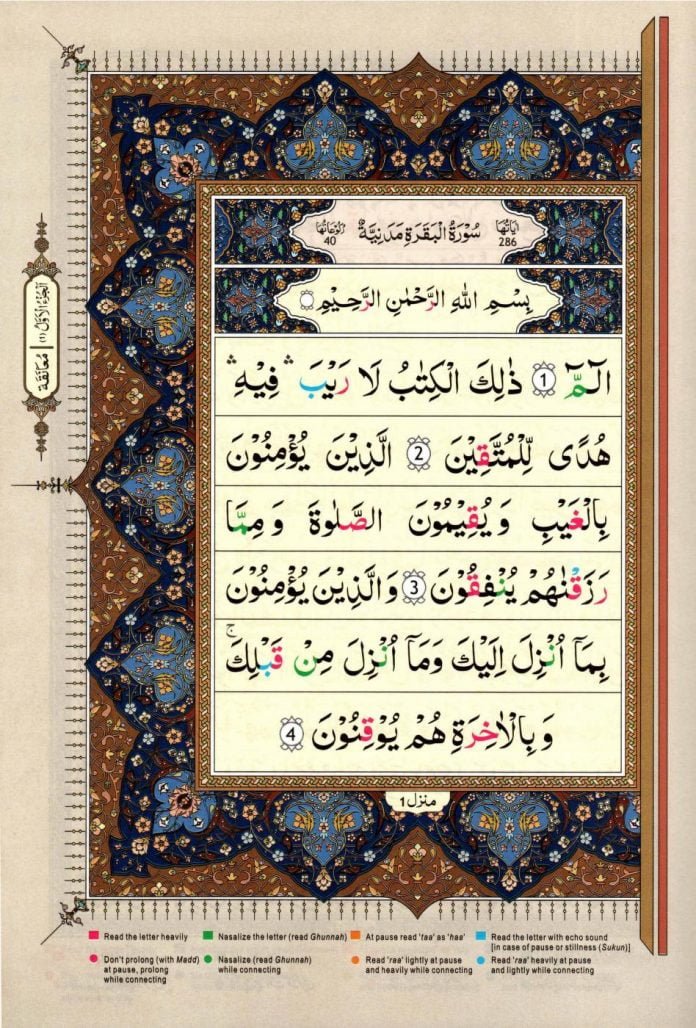 اٰیَاتُهَا 286 سُوْرَةُ الْبَقَرَةِ مَدَنِیَّةٌ رُكُوْعَاتُهَا 40
بِسْمِ اللهِ الرَّحْمٰنِ الرَّحِیْمِ
الٓـمّٓ 1 ذٰلِكَ الْكِتٰبُ لَا رَیْبَ ۛ فِیْهِ ۛ
هُدًى لِّلْمُتَّقِیْنَ 2 الَّذِیْنَ یُؤْمِنُوْنَ
بِالْغَیْبِ وَیُقِیْمُوْنَ الصَّلٰوةَ وَمِمَّا
رَزَقْنٰهُمْ یُنْفِقُوْنَ 3 وَالَّذِیْنَ یُؤْمِنُوْنَ
بِمَاۤ اُنْزِلَ اِلَیْكَ وَمَاۤ اُنْزِلَ مِنْ قَبْلِكَ ۚ
وَبِالْاٰخِرَةِ هُمْ یُوْقِنُوْنَ 4
منزل ۱
اَلْجُزْءُ الْاَوَّلُ (۱)
مُعَانَقَة
Read the letter heavily
Nasalize the letter (read Ghunnah)
At pause read 'taa' as 'haa'
Read the letter with echo sound
[in case of pause or stillness (Sukun)]
Don't prolong (with Madd)
at pause, prolong
while connecting
Nasalize (read Ghunnah)
while connecting
Read 'raa' lightly at pause
and heavily while connecting
Read 'raa' heavily at pause
and lightly while connecting